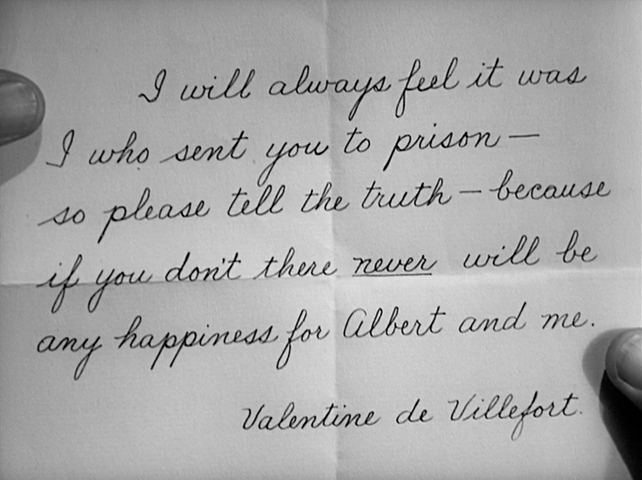 I will always feel it was
I who sent you to prison—
so please tell the truth—because
if you don't there never will be
any happiness for Albert and me.
Valentine de Villefort.